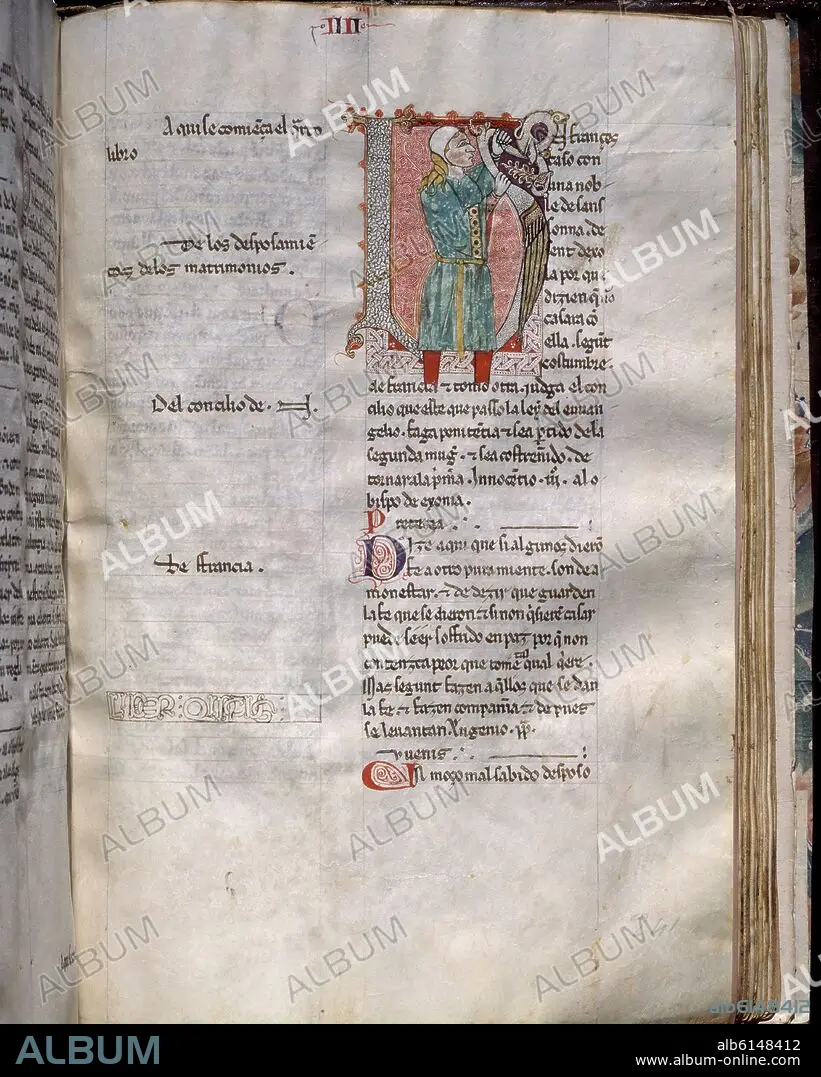 IIII
A qui se comiença el qrto
libro
De los desposamiē
tos de los matrimonios.
Del concilio de
De francia.
LIBER
frances
caso con
una nob
le de sans
sonna. de
ent dexo
la por qͥ
dizien q̄ no
casara cō
ella. segūt
costumbre.
de francia ⁊ tomo otra. judga el con
cilio que este que passo la ley del euan
gelio. faga penitēcia ⁊ sea ptido dela
segunda mug̃. ⁊ sea costrenido. de
tornar ala pm̃a. Innocētio. iij. al o
bispo de exonia.
P
Dize aqui que si algunos dierō
fe a otro puramiente. son de a
monestar. ⁊ de dezir que guarden
la fe que se dieron ⁊ si non q̄sierē casar
puede seer sofrido en paz por q̄ non
contenzca peor que tome tal qual q̄ere.
Mas segunt fazen aq̄llos que se dan
la fe. ⁊ fazen compania ⁊ de pues
se leuantan. Eugenio. pp.
Iuuenis
Un moço mal sabido desposo
ALBUM
alb6148412
ALBUM
alb6148412
www.album-online.com